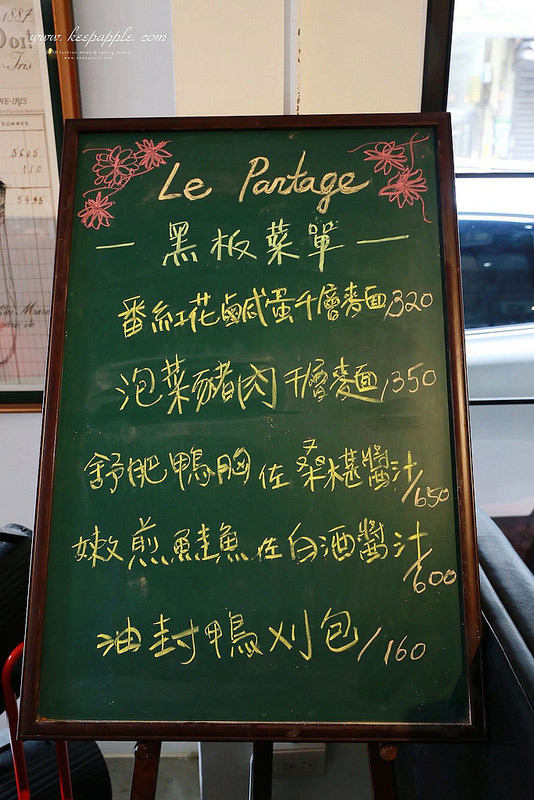 1887
www.keepapple.com
NE-IRIS
5605
110
5495
Le Partage
— 黑板菜單 —
番紅花鹹蛋千層麵/320
泡菜豬肉千層麵/350
舒肥鴨胸佐桑椹醬汁/650
嫩煎鮭魚佐白酒醬汁/600
油封鴨刈包/160